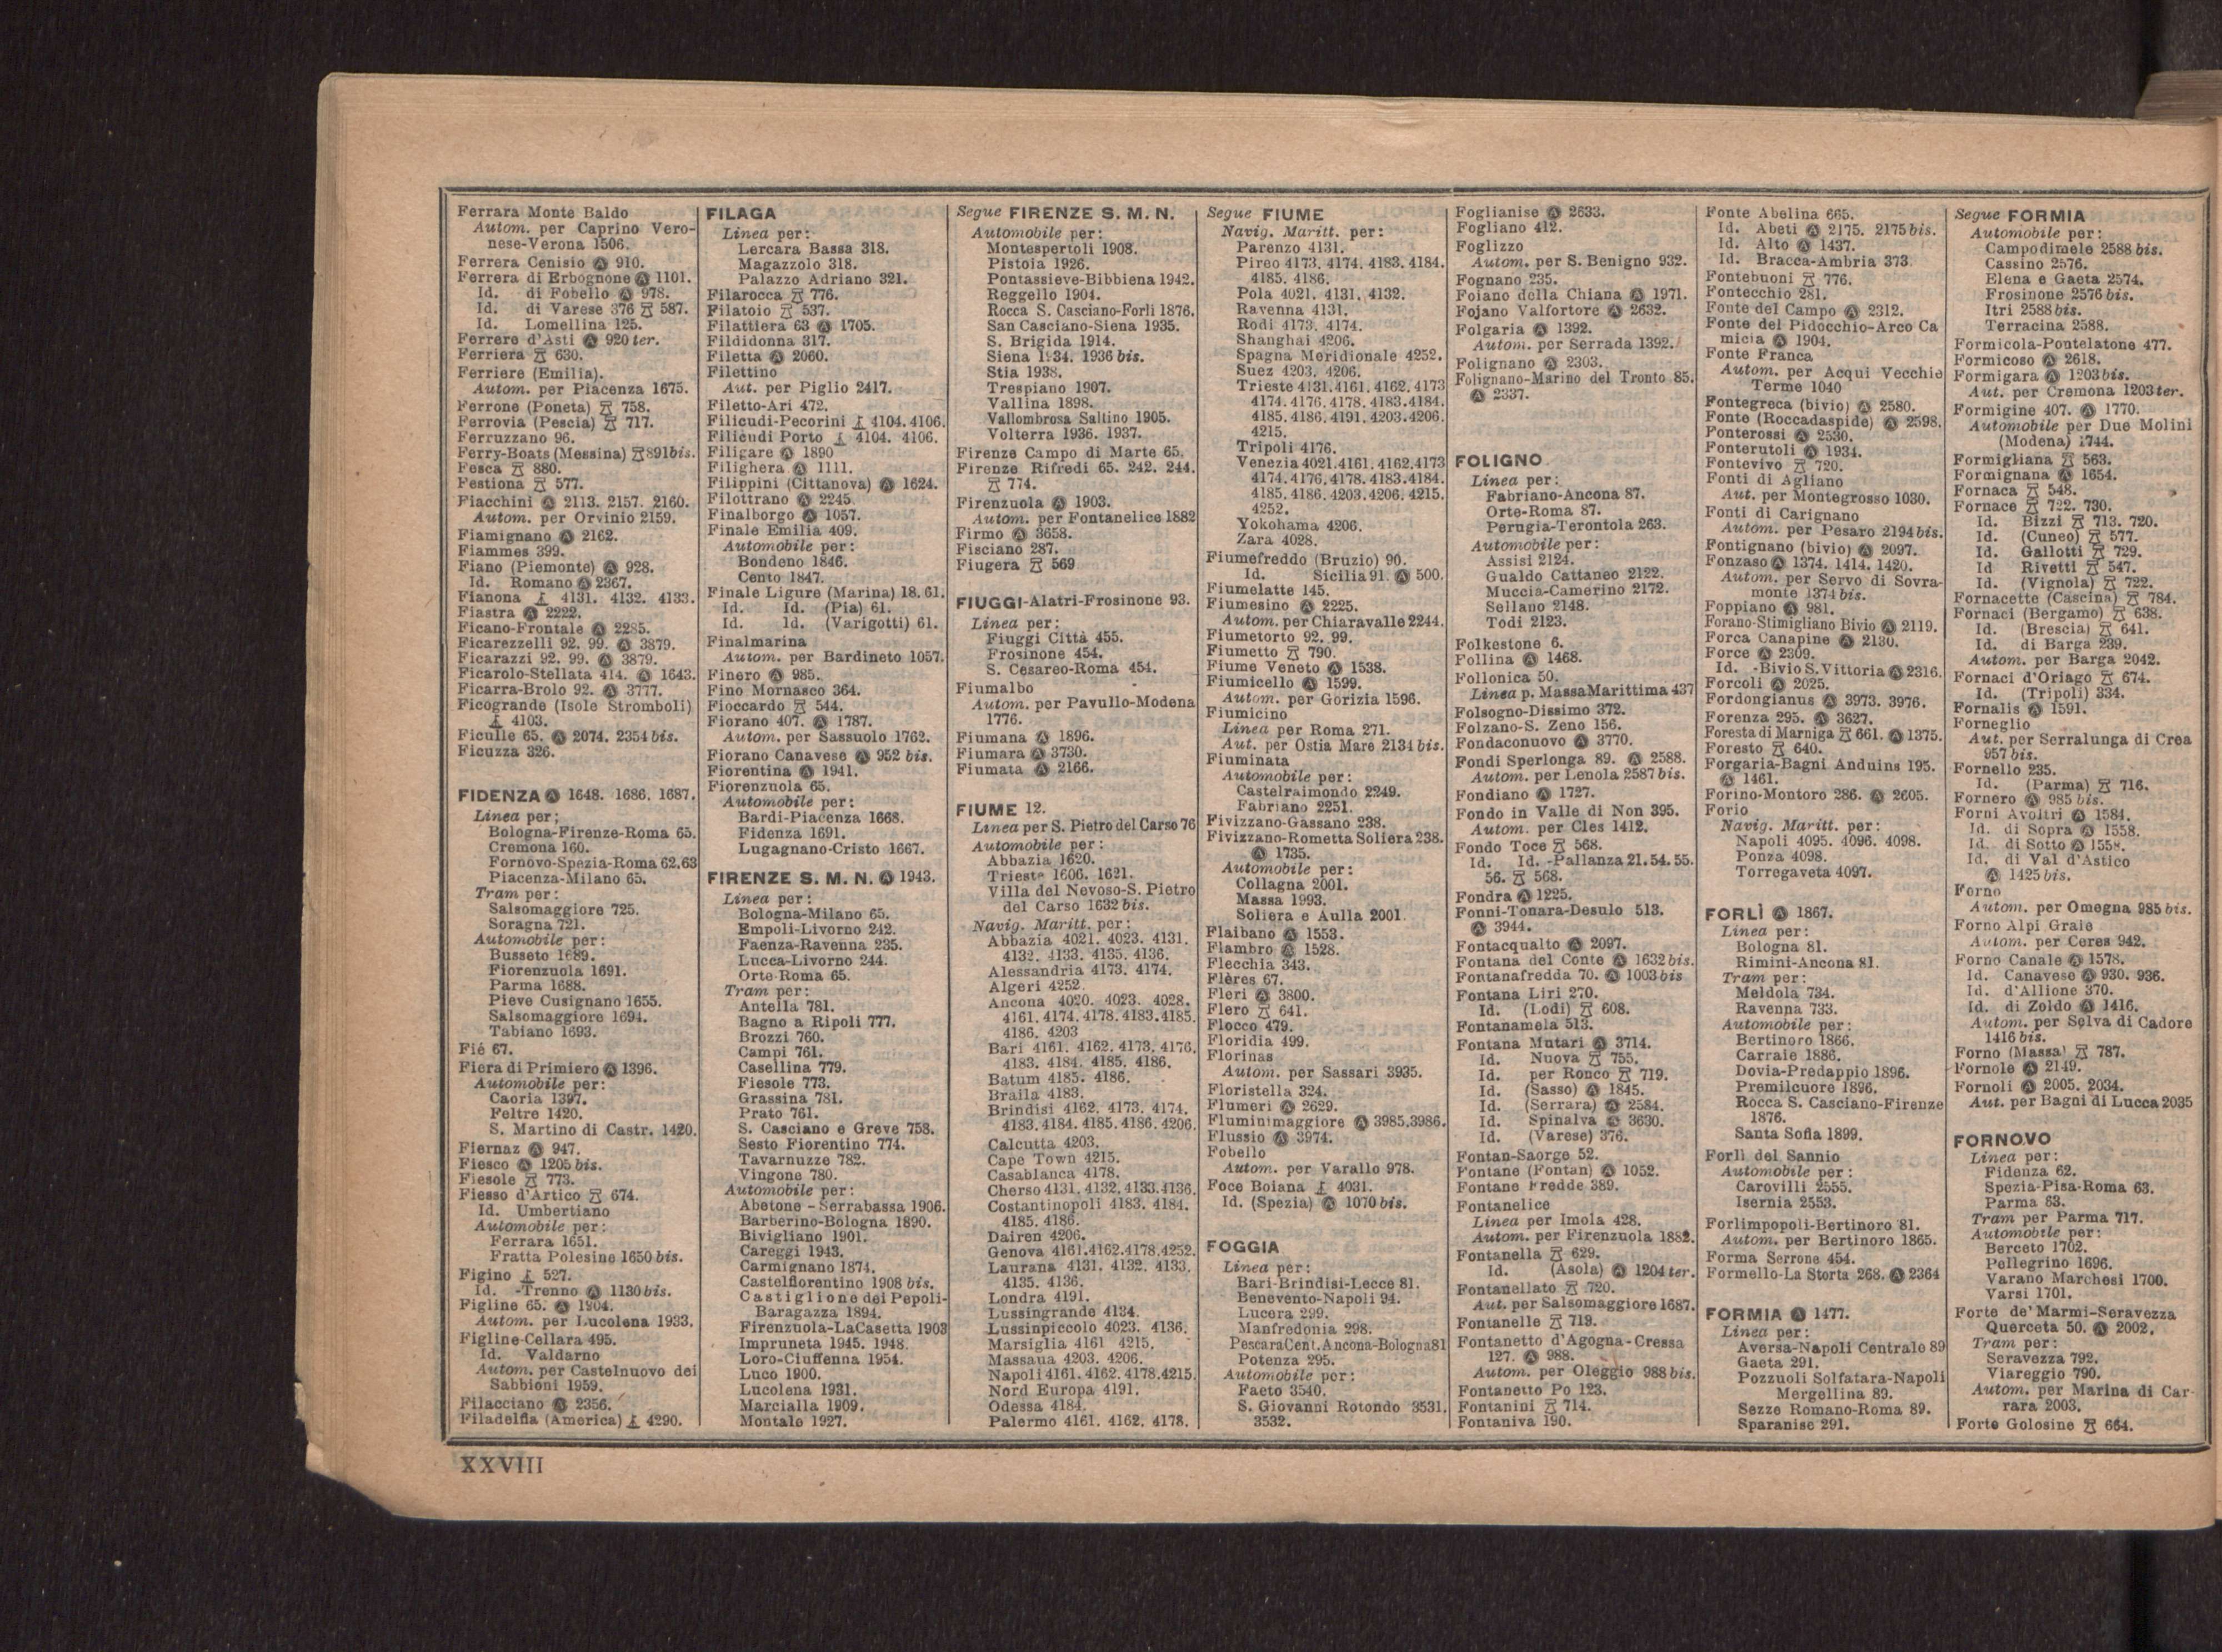 Ferrara Monte Baldo
Autom. per Caprino Vero-
nese-Verona 1506.
Ferrera Cenisio Ⓐ 910.
Ferrera di Erbognone Ⓐ 1101.
Id. di Fobello Ⓐ 978.
Id. di Varese 376 587.
Id. Lomellina 125.
Ferrere d'Asti Ⓐ 920 ter.
Ferriera 630.
Ferriere (Emilia).
Autom. per Piacenza 1675.
Ferrone (Poneta) 758.
Ferrovia (Pescia) 717.
Ferruzzano 96.
Ferry-Boats (Messina) 891 bis.
Fesca 880.
Festiona 577.
Fiacchini Ⓐ 2113. 2157. 2160.
Autom. per Orvinio 2159.
Fiamignano Ⓐ 2162.
Fiammes 399.
Fiano (Piemonte) Ⓐ 928.
Id. Romano Ⓐ 2367.
Fianona 4131. 4132. 4133.
Fiastra Ⓐ 2222.
Ficano-Frontale Ⓐ 2285.
Ficarezzelli 92. 99. Ⓐ 3879.
Ficarazzi 92. 99. Ⓐ 3879.
Ficarolo-Stellata 414. Ⓐ 1643.
Ficarra-Brolo 92. Ⓐ 3777.
Ficogrande (Isole Stromboli)
4103.
Ficulle 65. Ⓐ 2074. 2354 bis.
Ficuzza 326.
FIDENZA Ⓐ 1648. 1686. 1687.
Linea per;
Bologna-Firenze-Roma 65.
Cremona 160.
Fornovo-Spezia-Roma 62.63
Piacenza-Milano 65.
Tram per:
Salsomaggiore 725.
Soragna 721.
Automobile per:
Busseto 1689.
Fiorenzuola 1691.
Parma 1688.
Pieve Cusignano 1655.
Salsomaggiore 1694.
Tabiano 1693.
Fié 67.
Fiera di Primiero Ⓐ 1396.
Automobile per:
Caoria 1397.
Feltre 1420.
S. Martino di Castr. 1420.
Fiernaz Ⓐ 947.
Fiesco Ⓐ 1205 bis.
Fiesole 773.
Fiesso d'Artico 674.
Id. Umbertiano
Automobile per:
Ferrara 1651.
Fratta Polesine 1650 bis.
Figino 527.
Id. -Trenno Ⓐ 1130 bis.
Figline 65. Ⓐ 1904.
Autom. per Lucolena 1933.
Figline-Cellara 495.
Id. Valdarno
Autom. per Castelnuovo dei
Sabbioni 1959.
Filacciano Ⓐ 2356.
Filadelfia (America) 4290.
FILAGA
Linea per:
Lercara Bassa 318.
Magazzolo 318.
Palazzo Adriano 321.
Filarocca 776.
Filatoio 537.
Filattiera 63 Ⓐ 1705.
Fildidonna 317.
Filetta Ⓐ 2060.
Filettino
Aut. per Piglio 2417.
Filetto-Ari 472.
Filicudi-Pecorini 4104. 4106.
Filicudi Porto 4104. 4106.
Filigare Ⓐ 1890
Filighera Ⓐ 1111.
Filippini (Cittanova) Ⓐ 1624.
Filottrano Ⓐ 2245
Finalborgo Ⓐ 1057.
Finale Emilia 409.
Automobile per:
Bondeno 1846.
Cento 1847.
Finale Ligure (Marina) 18. 61.
Id. Id. (Pia) 61.
Id. Id. (Varigotti) 61.
Finalmarina
Autom. per Bardineto 1057.
Finero Ⓐ 985.
Fino Mornasco 364.
Fioccardo 544.
Fiorano 407. Ⓐ 1787.
Autom. per Sassuolo 1762.
Fiorano Canavese Ⓐ 952 bis.
Fiorentina Ⓐ 1941.
Fiorenzuola 65.
Automobile per:
Bardi-Piacenza 1668.
Fidenza 1691.
Lugagnano-Cristo 1667.
FIRENZE S. M. N. Ⓐ 1943.
Linea per:
Bologna-Milano 65.
Empoli-Livorno 242.
Faenza-Ravenna 235.
Lucca-Livorno 244.
Orte-Roma 65.
Tram per:
Antella 781.
Bagno a Ripoli 777.
Brozzi 760.
Campi 761.
Casellina 779.
Fiesole 773.
Grassina 781.
Prato 761.
S. Casciano e Greve 758.
Sesto Fiorentino 774.
Tavarnuzze 782.
Vingone 780.
Automobile per:
Abetone - Serrabassa 1906.
Barberino-Bologna 1890.
Bivigliano 1901.
Careggi 1943.
Carmignano 1874.
Castelfiorentino 1908 bis.
Castiglione dei Pepoli-
Baragazza 1894.
Firenzuola-LaCasetta 1903
Impruneta 1945. 1948.
Loro-Ciuffenna 1954.
Luco 1900.
Lucolena 1931.
Marcialla 1909.
Montale 1927.
Segue FIRENZE S. M. N.
Automobile per:
Montespertoli 1908.
Pistoia 1926.
Pontassieve-Bibbiena 1942.
Reggello 1904.
Rocca S. Casciano-Forlì 1876.
San Casciano-Siena 1935.
S. Brigida 1914.
Siena 1934. 1936 bis.
Stia 1938.
Trespiano 1907.
Vallina 1898.
Vallombrosa Saltino 1905.
Volterra 1936. 1937.
Firenze Campo di Marte 65.
Firenze Rifredi 65. 242. 244.
774.
Firenzuola Ⓐ 1903.
Autom. per Fontanelice 1882
Firmo Ⓐ 3658.
Fisciano 287.
Fiugera 569
FIUGGI-Alatri-Frosinone 93.
Linea per:
Fiuggi Città 455.
Frosinone 454.
S. Cesareo-Roma 454.
Fiumalbo
Autom. per Pavullo-Modena
1776.
Fiumana Ⓐ 1896.
Fiumara Ⓐ 3730.
Fiumata Ⓐ 2166.
FIUME 12.
Linea per S. Pietro del Carso 76
Automobile per:
Abbazia 1620.
Trieste 1606. 1621.
Villa del Nevoso-S. Pietro
del Carso 1632 bis.
Navig. Maritt. per:
Abbazia 4021. 4023. 4131.
4132. 4133. 4135. 4136.
Alessandria 4173. 4174.
Algeri 4252
Ancona 4020. 4023. 4028.
4161. 4174. 4178. 4183. 4185.
4186. 4203
Bari 4161. 4162. 4173. 4176.
4183. 4184. 4185. 4186.
Batum 4185. 4186.
Braila 4183.
Brindisi 4162. 4173. 4174.
4183. 4184. 4185. 4186. 4206.
Calcutta 4203.
Cape Town 4215.
Casablanca 4178.
Cherso 4131. 4132. 4133. 4136.
Costantinopoli 4183. 4184.
4185. 4186.
Dairen 4206.
Genova 4161. 4162. 4178. 4252.
Laurana 4131. 4132. 4133.
4135. 4136.
Londra 4191.
Lussingrande 4134.
Lussinpiccolo 4023. 4136.
Marsiglia 4161 4215.
Massaua 4203. 4206.
Napoli 4161. 4162. 4178. 4215.
Nord Europa 4191.
Odessa 4184.
Palermo 4161. 4162. 4178.
Segue FIUME
Navig. Maritt. per:
Parenzo 4131.
Pireo 4173. 4174. 4183. 4184.
4185. 4186.
Pola 4021. 4131. 4132.
Ravenna 4131.
Rodi 4173. 4174.
Shanghai 4206.
Spagna Meridionale 4252.
Suez 4203. 4206.
Trieste 4131. 4161. 4162. 4173
4174. 4176. 4178. 4183. 4184.
4185. 4186. 4191. 4203. 4206.
4215.
Tripoli 4176.
Venezia 4021. 4161. 4162. 4173
4174. 4176. 4178. 4183. 4184.
4185. 4186. 4203. 4206. 4215.
4252.
Yokohama 4206.
Zara 4028.
Fiumefreddo (Bruzio) 90.
Id. Sicilia 91. Ⓐ 500.
Fiumelatte 145.
Fiumesino Ⓐ 2225.
Autom. per Chiaravalle 2244.
Fiumetorto 92. 99.
Fiumetto 790.
Fiume Veneto Ⓐ 1538.
Fiumicello Ⓐ 1599.
Autom. per Gorizia 1596.
Fiumicino
Linea per Roma 271.
Aut. per Ostia Mare 2134 bis.
Fiuminata
Automobile per:
Castelraimondo 2249.
Fabriano 2251.
Fivizzano-Gassano 238.
Fivizzano-Rometta Soliera 238.
Ⓐ 1735.
Automobile per:
Collagna 2001.
Massa 1993.
Soliera e Aulla 2001
Flaibano Ⓐ 1553.
Flambro Ⓐ 1528.
Flecchia 343.
Flères 67.
Fleri Ⓐ 3800.
Flero 641.
Flocco 479.
Floridia 499.
Florinas
Autom. per Sassari 3935.
Floristella 324.
Flumeri Ⓐ 2629.
Fluminimaggiore Ⓐ 3985. 3986.
Flussio Ⓐ 3974.
Fobello
Autom. per Varallo 978.
Foce Boiana 4031.
Id. (Spezia) Ⓐ 1070 bis.
FOGGIA
Linea per:
Bari-Brindisi-Lecce 81.
Benevento-Napoli 94.
Lucera 299.
Manfredonia 298.
Pescara Cent. Ancona-Bologna 81
Potenza 295.
Automobile per:
Faeto 3540.
S. Giovanni Rotondo 3531.
3532.
Foglianise Ⓐ 2633.
Fogliano 412.
Foglizzo
Autom. per S. Benigno 932.
Fognano 235.
Foiano della Chiana Ⓐ 1971.
Fojano Valfortore Ⓐ 2632.
Folgaria Ⓐ 1392.
Autom. per Serrada 1392.
Folignano Ⓐ 2303.
Folignano-Marino del Tronto 85.
Ⓐ 2337.
FOLIGNO
Linea per:
Fabriano-Ancona 87.
Orte-Roma 87.
Perugia-Terontola 263.
Automobile per:
Assisi 2124.
Gualdo Cattaneo 2122.
Muccia-Camerino 2172.
Sellano 2148.
Todi 2123.
Folkestone 6.
Follina Ⓐ 1468.
Follonica 50.
Linea p. MassaMarittima 437
Folsogno-Dissimo 372.
Folzano-S. Zeno 156.
Fondaconuovo Ⓐ 3770.
Fondi Sperlonga 89. Ⓐ 2588.
Autom. per Lenola 2587 bis.
Fondiano Ⓐ 1727.
Fondo in Valle di Non 395.
Autom. per Cles 1412.
Fondo Toce 568.
Id. Id. -Pallanza 21. 54. 55.
56. 568.
Fondra Ⓐ 1225.
Fonni-Tonara-Desulo 513.
Ⓐ 3944.
Fontacqualto Ⓐ 2097.
Fontana del Conte Ⓐ 1632 bis.
Fontanafredda 70. Ⓐ 1003 bis
Fontana Liri 270.
Id. (Lodi) 608.
Fontanamela 513.
Fontana Mutari Ⓐ 3714.
Id. Nuova 755.
Id. per Ronco 719.
Id. (Sasso) Ⓐ 1845.
Id. (Serrara) Ⓐ 2584.
Id. Spinalva Ⓐ 3630.
Id. (Varese) 376.
Fontan-Saorge 52.
Fontane (Fontan) Ⓐ 1052.
Fontane Fredde 389.
Fontanelice
Linea per Imola 428.
Autom. per Firenzuola 1882.
Fontanella 629.
Id. (Asola) Ⓐ 1204 ter.
Fontanellato 720.
Aut. per Salsomaggiore 1687.
Fontanelle 719.
Fontanetto d'Agogna-Cressa
127. Ⓐ 988.
Autom. per Oleggio 988 bis.
Fontanetto Po 123.
Fontanini 714.
Fontaniva 190.
Fonte Abelina 665.
Id. Abeti Ⓐ 2175. 2175 bis.
Id. Alto Ⓐ 1437.
Id. Bracca-Ambria 373
Fontebuoni 776.
Fontecchio 281.
Fonte del Campo Ⓐ 2312.
Fonte del Pidocchio-Arco Ca
micia Ⓐ 1904.
Fonte Franca
Autom. per Acqui Vecchie
Terme 1040
Fontegreca (bivio) Ⓐ 2580.
Fonte (Roccadaspide) Ⓐ 2598.
Fonterossi Ⓐ 2530.
Fonterutoli Ⓐ 1934.
Fontevivo 720.
Fonti di Agliano
Aut. per Montegrosso 1030.
Fonti di Carignano
Autom. per Pesaro 2194 bis.
Fontignano (bivio) Ⓐ 2097.
Fonzaso Ⓐ 1374. 1414. 1420.
Autom. per Servo di Sovra-
monte 1374 bis.
Foppiano Ⓐ 981.
Forano-Stimigliano Bivio Ⓐ 2119.
Forca Canapine Ⓐ 2130.
Force Ⓐ 2309.
Id. -Bivio S. Vittoria Ⓐ 2316.
Forcoli Ⓐ 2025.
Fordongianus Ⓐ 3973. 3976.
Forenza 295. Ⓐ 3627.
Foresta di Marniga 661. Ⓐ 1375.
Foresto 640.
Forgaria-Bagni Anduins 195.
Ⓐ 1461.
Forino-Montoro 286. Ⓐ 2605.
Forio
Navig. Maritt. per:
Napoli 4095. 4096. 4098.
Ponza 4098.
Torregaveta 4097.
FORLÌ Ⓐ 1867.
Linea per:
Bologna 81.
Rimini-Ancona 81.
Tram per:
Meldola 734.
Ravenna 733.
Automobile per:
Bertinoro 1866.
Carraie 1886.
Dovia-Predappio 1896.
Premilcuore 1896.
Rocca S. Casciano-Firenze
1876.
Santa Sofia 1899.
Forlì del Sannio
Automobile per:
Carovilli 2555.
Isernia 2553.
Forlimpopoli-Bertinoro 81.
Autom. per Bertinoro 1865.
Forma Serrone 454.
Formello-La Storta 268. Ⓐ 2364
FORMIA Ⓐ 1477.
Linea per:
Aversa-Napoli Centrale 89
Gaeta 291.
Pozzuoli Solfatara-Napoli
Mergellina 89.
Sezze Romano-Roma 89.
Sparanise 291.
Segue FORMIA
Automobile per:
Campodimele 2588 bis.
Cassino 2576.
Elena e Gaeta 2574.
Frosinone 2576 bis.
Itri 2588 bis.
Terracina 2588.
Formicola-Pontelatone 477.
Formicoso Ⓐ 2618.
Formigara Ⓐ 1203 bis.
Aut. per Cremona 1203 ter.
Formigine 407. Ⓐ 1770.
Automobile per Due Molini
(Modena) 1744.
Formigliana 563.
Formignana Ⓐ 1654.
Fornaca 548.
Fornace 722. 730.
Id. Bizzi 713. 720.
Id. (Cuneo) 577.
Id. Gallotti 729.
Id Rivetti 547.
Id. (Vignola) 722.
Fornacette (Cascina) 784.
Fornaci (Bergamo) 638.
Id. (Brescia) 641.
Id. di Barga 239.
Autom. per Barga 2042.
Fornaci d'Oriago 674.
Id. (Tripoli) 334.
Fornalis Ⓐ 1591.
Forneglio
Aut. per Serralunga di Crea
957 bis.
Fornello 235.
Id. (Parma) 716.
Fornero Ⓐ 985 bis.
Forni Avoltri Ⓐ 1584.
Id. di Sopra Ⓐ 1558.
Id. di Sotto Ⓐ 1558.
Id. di Val d'Astico
Ⓐ 1425 bis.
Forno
Autom. per Omegna 985 bis.
Forno Alpi Graie
Autom. per Ceres 942.
Forno Canale Ⓐ 1578.
Id. Canavese Ⓐ 930. 936.
Id. d'Allione 370.
Id. di Zoldo Ⓐ 1416.
Autom. per Selva di Cadore
1416 bis.
Forno (Massa) 787.
Fornole Ⓐ 2149.
Fornoli Ⓐ 2005. 2034.
Aut. per Bagni di Lucca 2035
FORNOVO
Linea per:
Fidenza 62.
Spezia-Pisa-Roma 63.
Parma 63.
Tram per Parma 717.
Automobile per:
Berceto 1702.
Pellegrino 1696.
Varano Marchesi 1700.
Varsi 1701.
Forte de' Marmi-Seravezza
Querceta 50. Ⓐ 2002.
Tram per:
Seravezza 792.
Viareggio 790.
Autom. per Marina di Car-
rara 2003.
Forte Golosine 664.
XXVIII